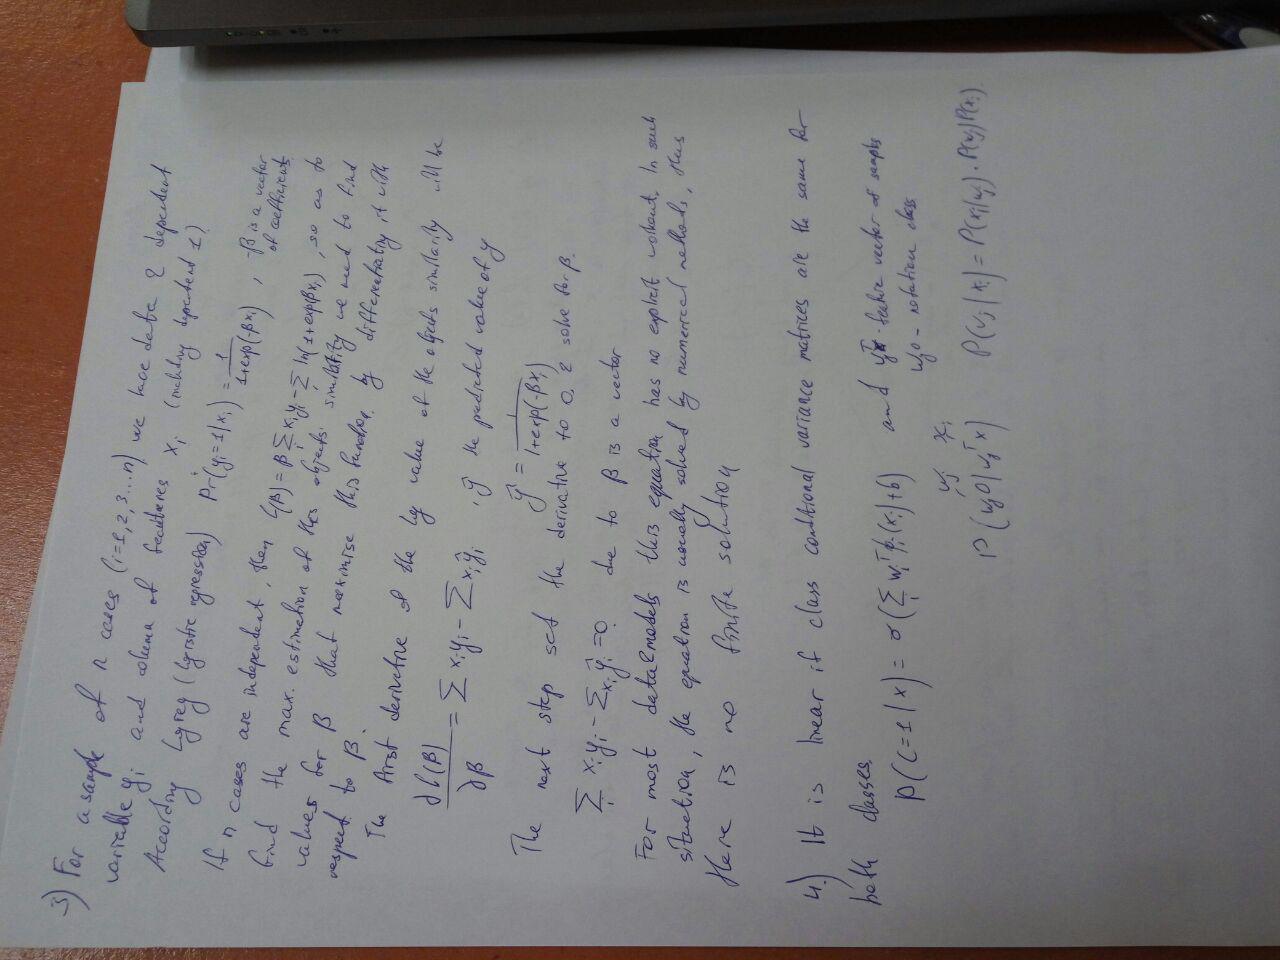 3) For a sample of n cases (i=1,2,3...n) we have data & dependent
variable yi and column of features xi (including dependent 1)
According Logreg (logistic regression) Pr(yi=1|xi) = 1/(1+exp(-βxi)) , -β is a vector
of coefficients
If n cases are independent, then L(β) = β Σi xiyi - Σi ln(1+exp(βxi)) , so as to
find the max. estimation of this objects' similarity we need to find
values for β that maximise this function, by differentiating it with
respect to β.
The first derivative of the log value of the objects similarity will be
∂l(β)/∂β = Σ xiyi - Σ xiŷi , ŷ the predicted value of y
ŷ = 1/(1+exp(-βxi))
The next step set the derivative to 0, & solve for β.
Σi xiyi - Σxiŷi = 0 due to β is a vector
For most data&models this equation has no explicit In such
situation, the equation is usually solved by numerical methods, thus
there is no finite solution
4.) It is linear if class conditional variance matrices are the same for
both classes.
P(C=1|x) = σ(Σi wiᵀ (xi)+b) and - feature vector of samples
wj0 - notation class
wj xi
P(wj0|wjᵀx) P(wj|xi) = P(xi|wj)·P(wj)P(xi)